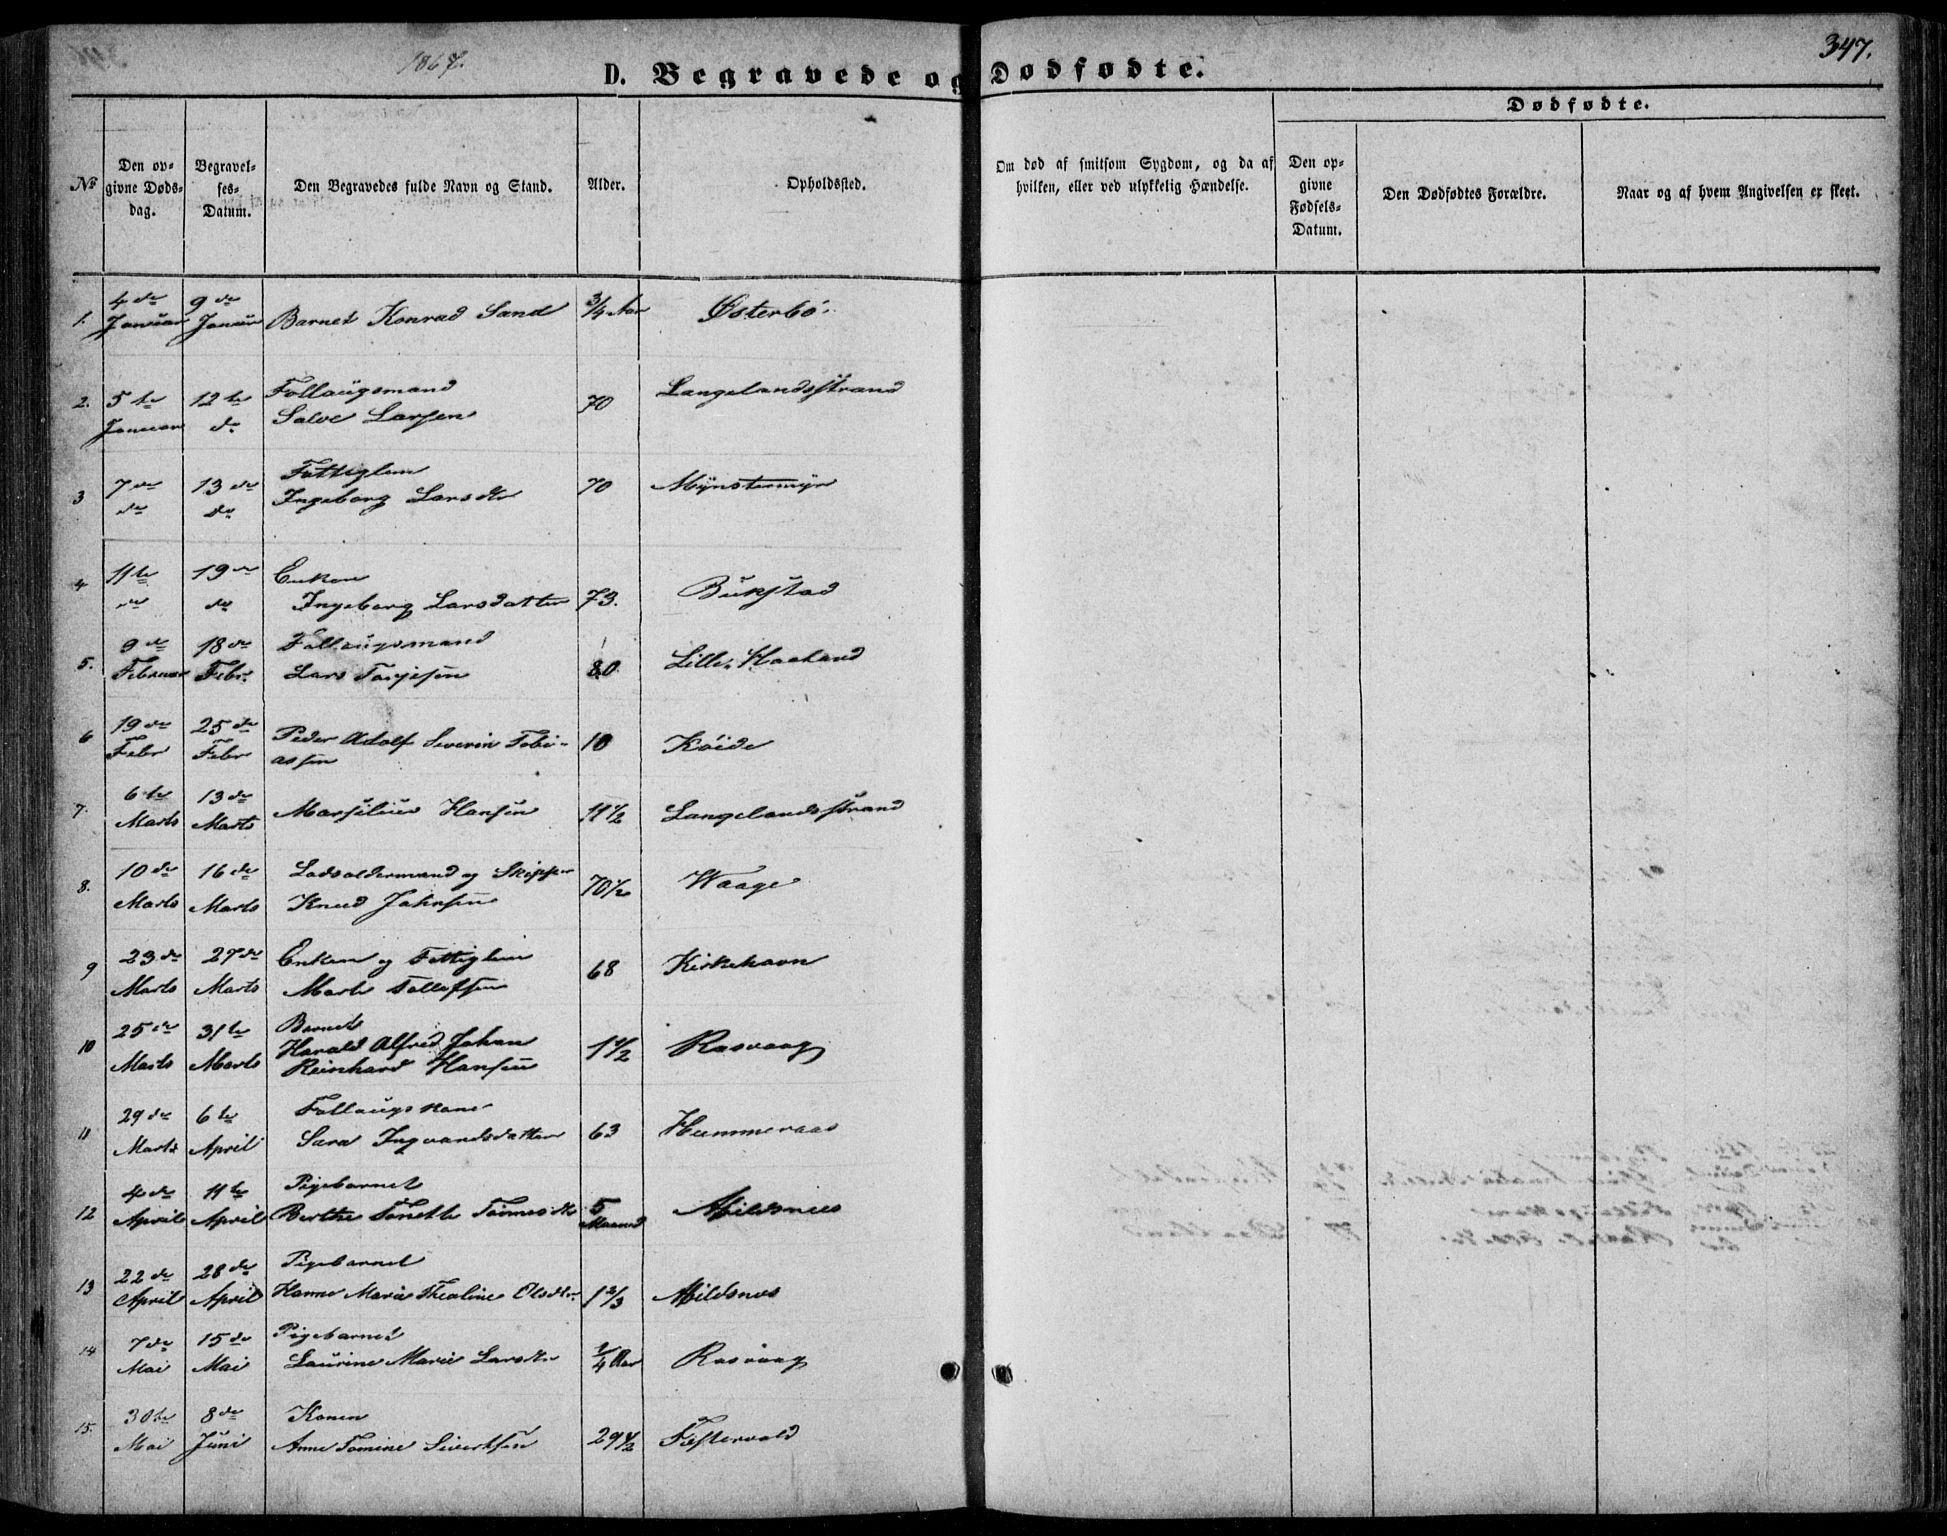 1867.
347.
D. Begravede og Dødfødte.
Dødfødte.
No
Den opgivne Dødsdag.
Begravelses-Datum.
Den Begravedes fulde Navn og Stand.
Alder.
Opholdssted.
Om død af smitsom Sygdom, og da af hvilken, eller ved ulykkelig Hændelse.
Den opgivne Fødsels-Datum.
Den Dødfødtes Forældre.
Naar og af hvem Angivelsen er skeet.
1. 4de Januar 9de Januar Barnet Konrad Sand 3/4 Aar Østerbö
2. 5te Januar 12te do Follaugsmand Salve Larsen 70 Langelandsstrand
3 7de do 13de do Fattiglem Ingeborg Larsdtr 70 Mÿnstermÿr
4 11te do 19de do Enken Ingeborg Larsdatter 73. Bukstad
5. 9de Februar 18de Febr. Follaugsmand Lars Tarjesen 80. Lille Haaland
6 19de Febr 25de Febr Peder Adolf Severin Tobiassen 10 Köide
7. 6te Marts 13de Marts Marsilius Hansen 11 1/2 Langelandsstrand
8. 10de Marts 16de Marts Lodsoldermand og Skipper Knud Johnsen 70 1/2 Waage
9 23de Marts 27de Marts Enken og Fattiglem Marte Tollefsen 68 Kirkehavn
10 25de Marts 31te Marts Barnet Harald Alfred Johan Reinhard Hansen 1 1/2 Rasvaag
11 29de Marts 6te April Follaugskone Sara Ingvaldsdatter 63 Hummeraas
12 4de April 11te April Pigebarnet Berthe Tonette Tønnesdtr 5 Maaned Mildsnes
13 22de April 28de April Pigebarnet Hanne Marie Thealine Olsdtr. 1 2/3 Mildsnes
14 7de Mai 15de Mai Pigebarnet Laurine Marie Larsdtr 1/4 Aar Rasvaag
15. 30te Mai 8de Juni Konen Anne Tomine Sivertsen 29 1/2 Fæstervold